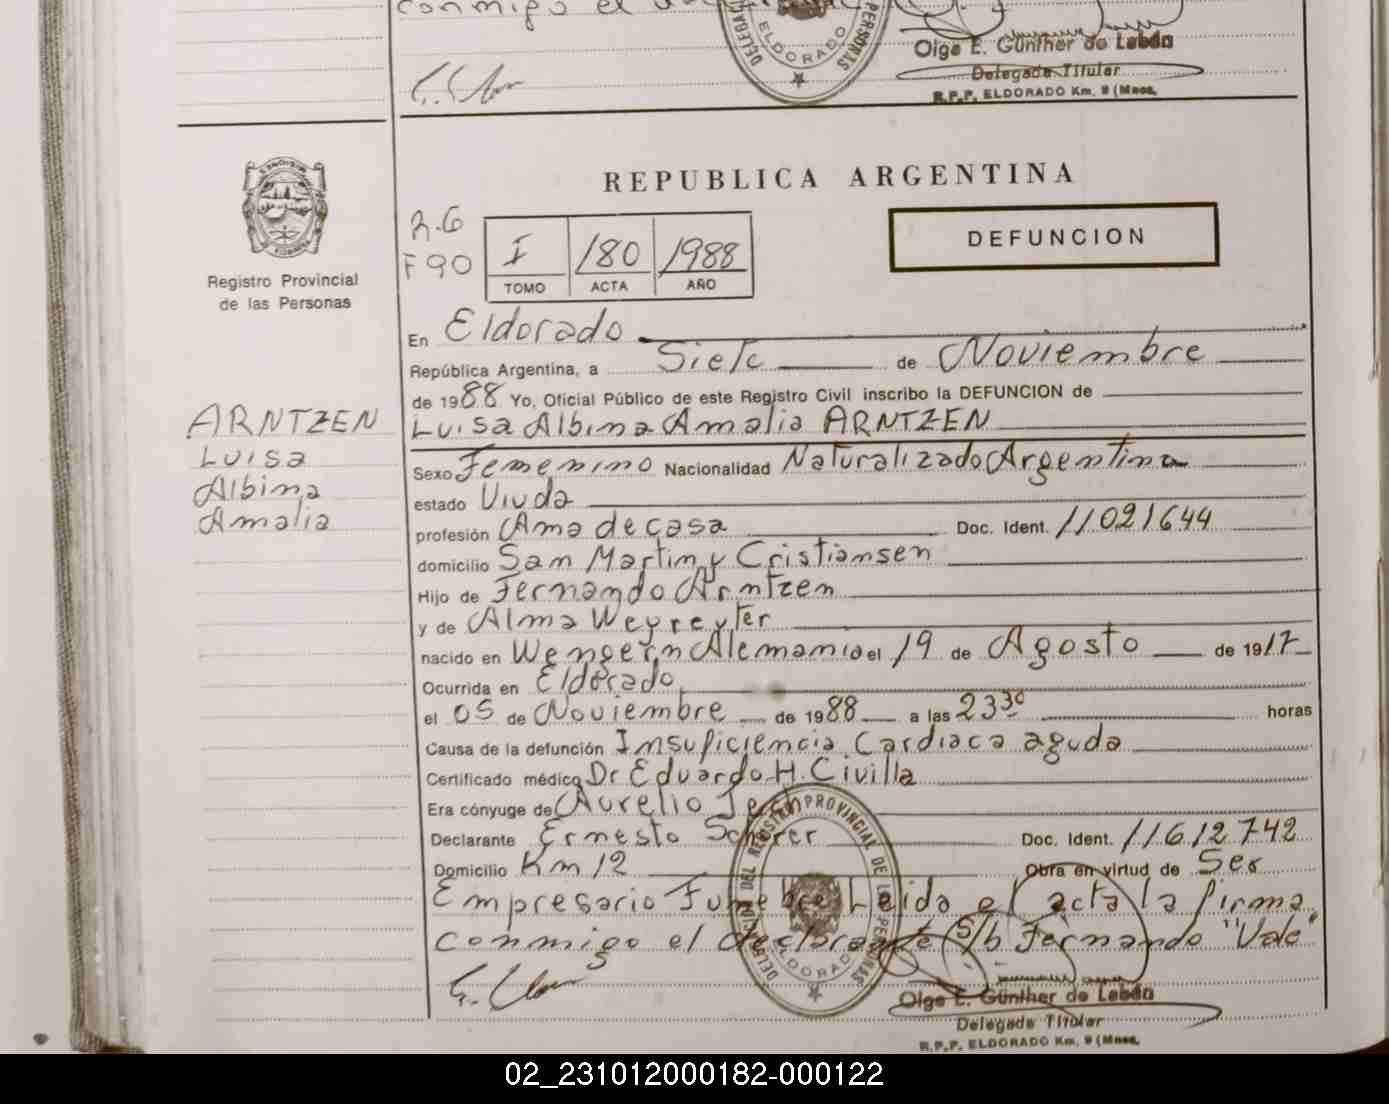 conmigo el
DELEGACION
PERSONAS
ELDORADO
Olga E. Günther de Lebán
Delegada Titular
R.P.P. ELDORADO Km. 9 (Mnes.
REPUBLICA ARGENTINA
F 90
I
180
1988
TOMO
ACTA
AÑO
DEFUNCION
Registro Provincial
de las Personas
En Eldorado
República Argentina, a Siete de Noviembre
de 1988 Yo, Oficial Público de este Registro Civil inscribo la DEFUNCION de
ARNTZEN
Luisa
Albina
Amalia
Luisa Albina Amalia ARNTZEN
Sexo Femenino Nacionalidad Naturalizado Argentina
estado Viuda
profesión Ama de casa Doc. Ident. 11021644
domicilio San Martin y Cristiansen
Hijo de Fernando Arntzen
y de Alma Weyreyter
nacido en Wengern Alemania el 19 de Agosto de 1917
Ocurrida en Eldorado
el 05 de Noviembre de 1988 a las 23 30 horas
Causa de la defunción Insuficiencia Cardiaca aguda
Certificado médico Dr Eduardo H. Civilla
Era cónyuge de Aurelio
Declarante Ernesto Scherer Doc. Ident. 11612742
Domicilio Km 12 Obra en virtud de Ser
Empresario Funebre Leida el acta la firma
conmigo el declarante S/b Fernando "Vale"
DELEGACION DEL REGISTRO PROVINCIAL DE LAS PERSONAS
ELDORADO
Olga E. Günther de Lebán
Delegada Titular
R.P.P. ELDORADO Km. 9 (Mnes.
02_231012000182-000122